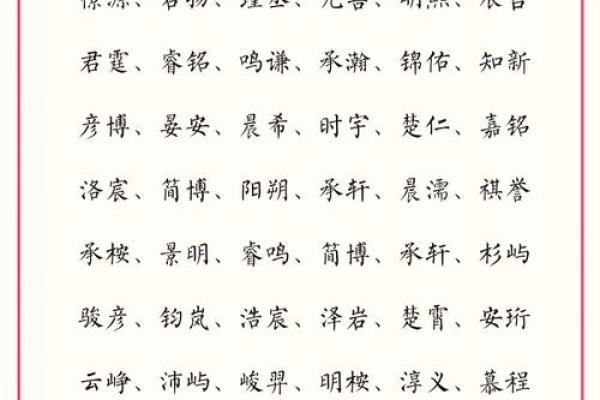 君霆、睿铭、鸣谦、承瀚、锦佑、知新
彦博、晏安、晨希、时宇、楚仁、嘉铭
洛宸、简博、阳朔、承轩、晨濡、祺誉
承桉、景明、睿鸣、简博、承轩、杉屿
骏彦、钧岚、浩宸、泽岩、楚霄、安珩
云峥、沛屿、峻羿、明桉、淳义、慕程